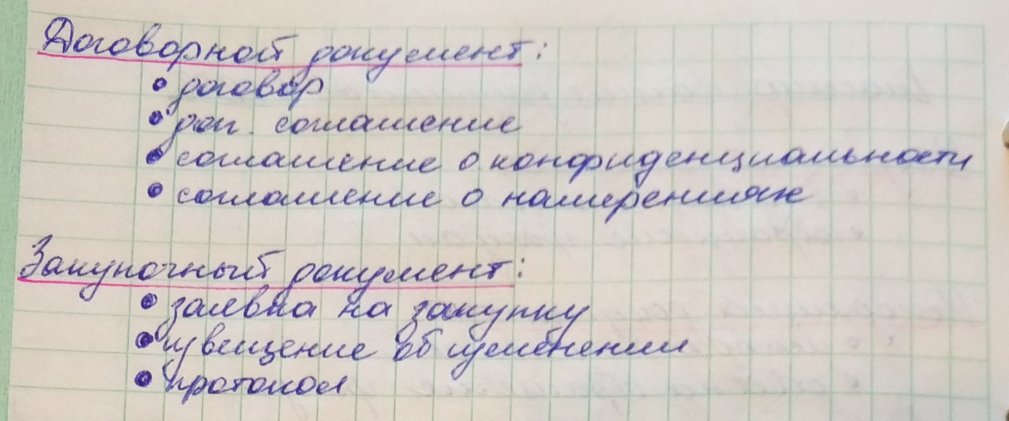 Договорной документ:
• договор
• доп. соглашение
• соглашение о конфиденциальности
• соглашение о намерениях
Закупочный документ:
• заявка на закупку
• извещение об изменении
• протокол